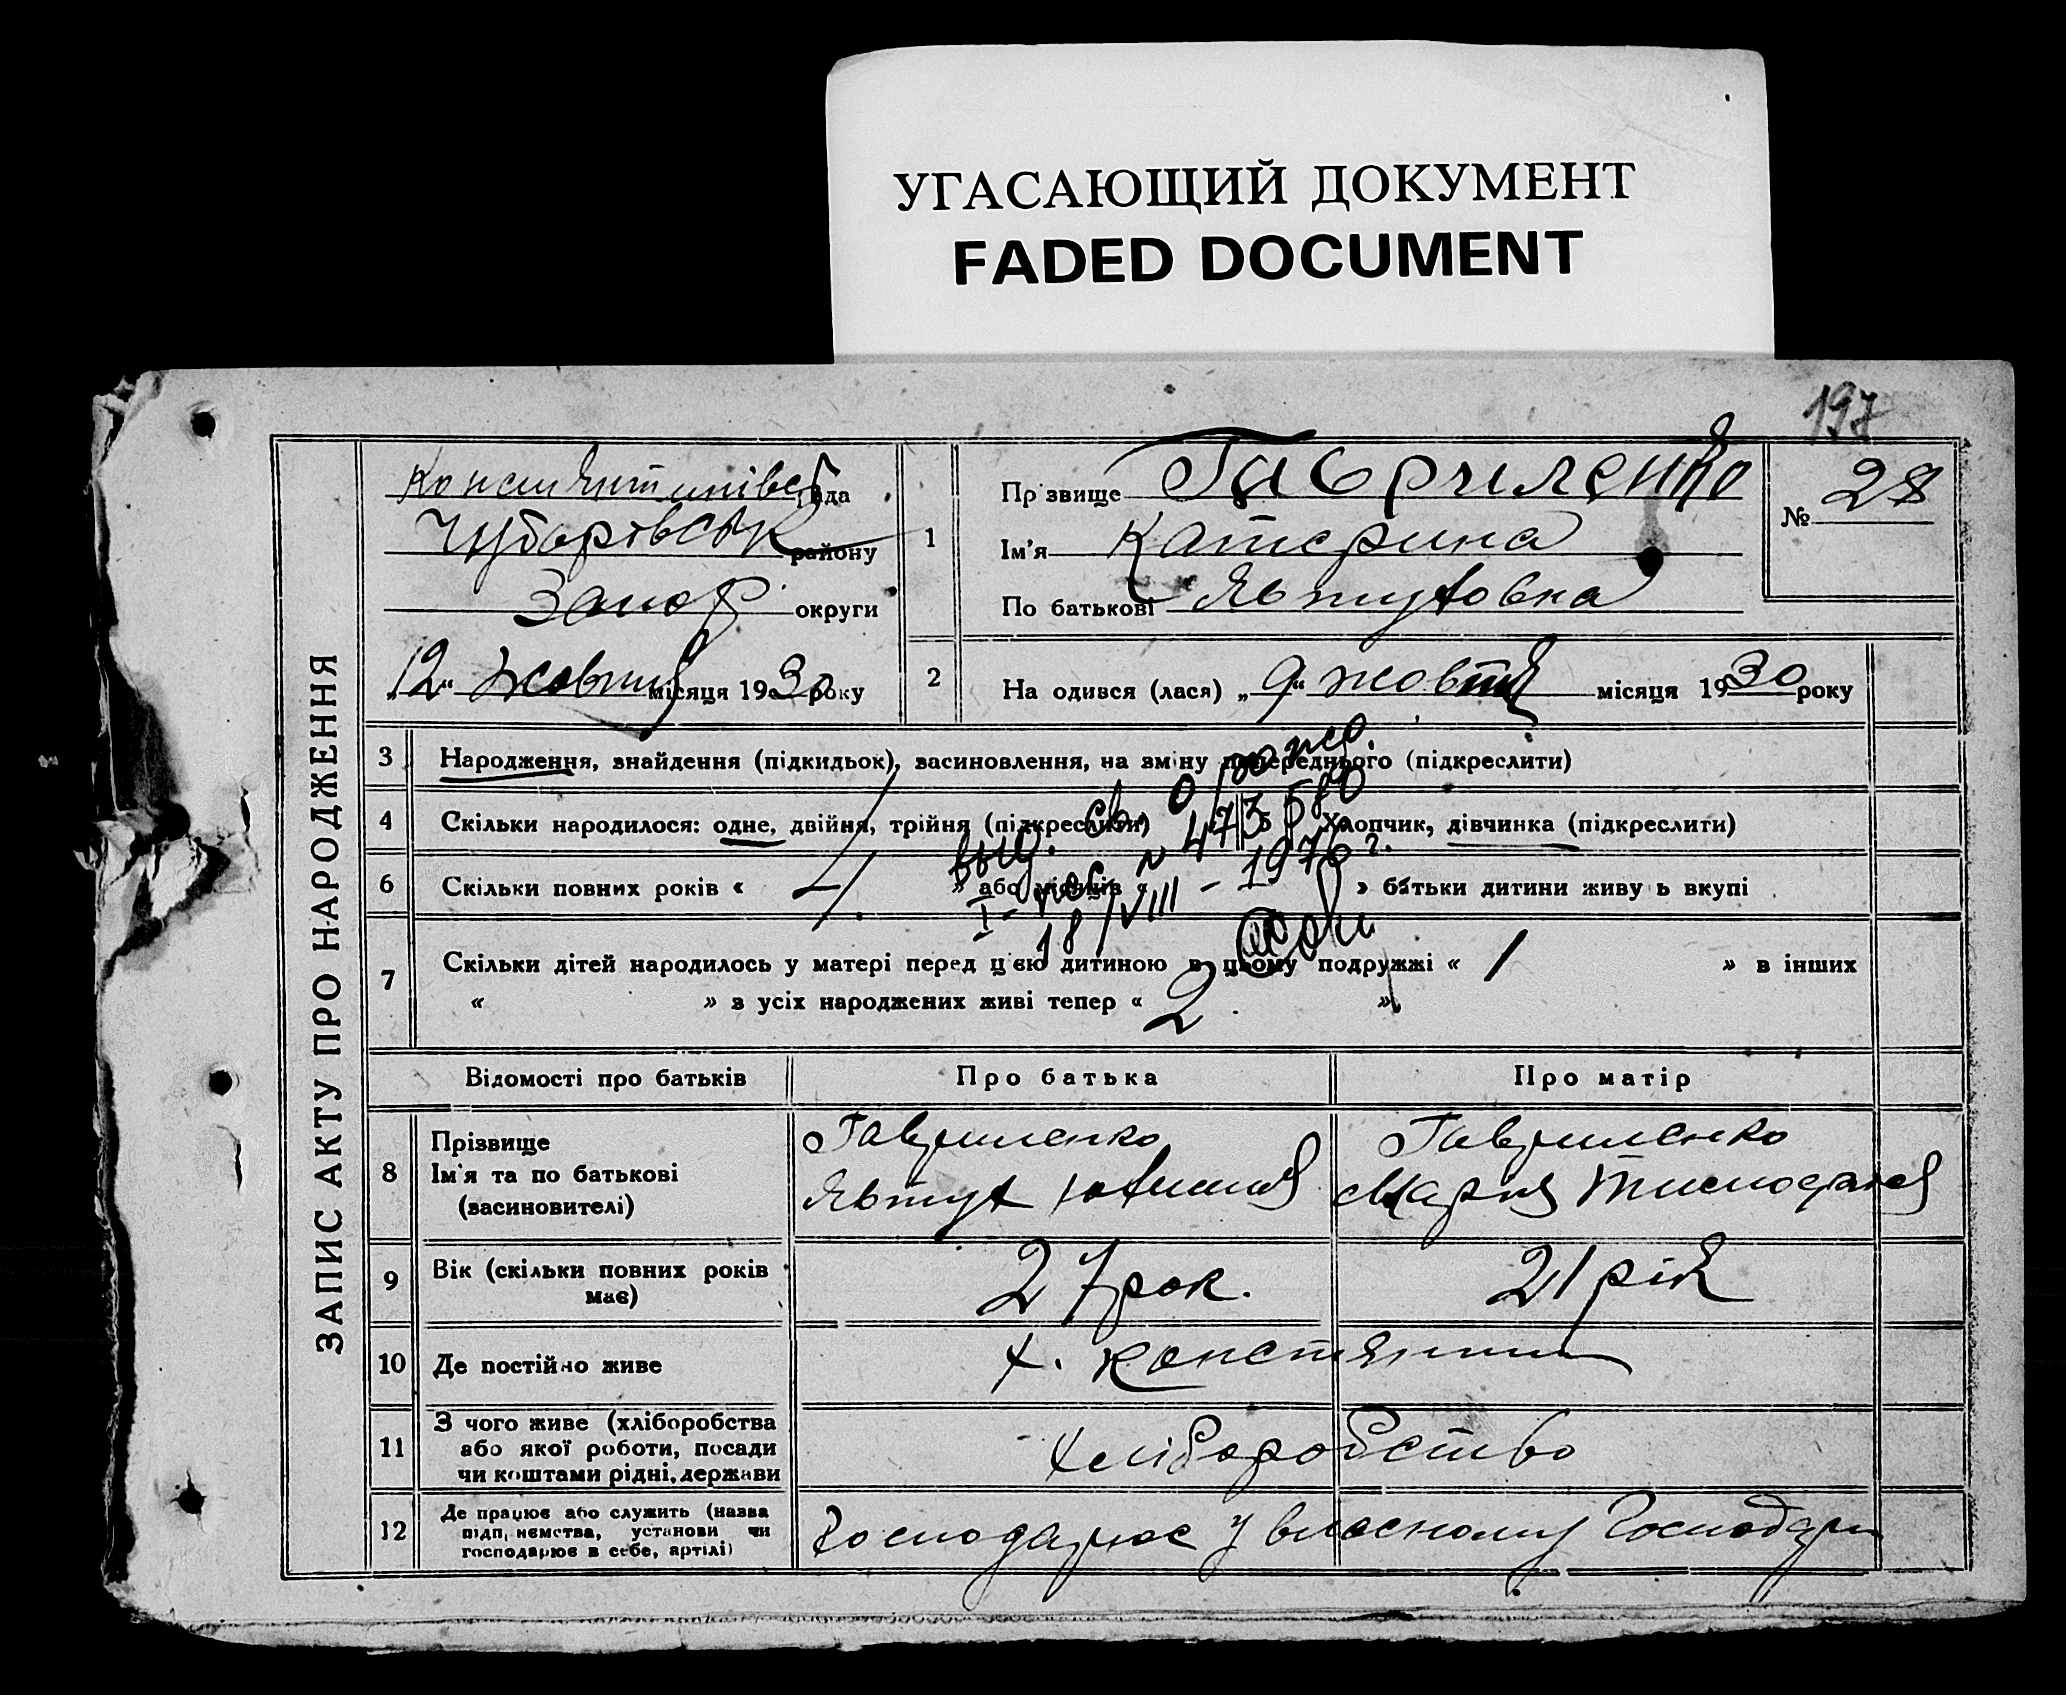 УГАСАЮЩИЙ ДОКУМЕНТ
FADED DOCUMENT
197
ЗАПИС АКТУ ПРО НАРОДЖЕННЯ
Констянтинівсь рада
Чубарівськ району
Запор округи
„12“ жовтня місяця 1930 року
1
Прізвище Гавриленко
Ім'я Катерина
По батькові Явтуховна
№ 28
2 На одився (лася) „9“ жовтня місяця 1930 року
3 Народження, знайдення (підкидьок), васиновлення, на зміну попереднього (підкреслити)
4 Скільки народилося: одне, двійня, трійня (підкреслити) 5 Хлопчик, дівчинка (підкреслити)
6 Скільки повних років « 4 » або місяців « » батьки дитини живу ь вкупі
выд. св. о рожд.
I- № 473580
18/VIII - 1976 г.
7 Скільки дітей народилось у матері перед цією дитиною в цьому подружжі « 1 » в інших
« » в усіх народжених живі тепер « 2 »
Відомості про батьків Про батька Про матір
8 Прізвище
Ім'я та по батькові
(васиновителі)
Гавриленко
Явтух
Гавриленко
Мария
9 Вік (скільки повних років
має)
27 рок. 21 рік
10 Де постійно живе х. Констянтин
11 З чого живе (хліборобства
або якої роботи, посади
чи коштами рідні, держави
хліборобство
12 Де працює або служить (назва
підп, иємства, установи чи
господарює в себе, артілі)
Господарює у власному господар